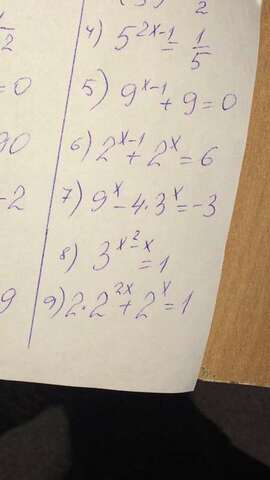 1/2
= 0
90
-2
9
2
4) 5^{2x-1} = 1/5
5) 9^{x-1} + 9 = 0
6) 2^{x-1} + 2^x = 6
7) 9^x - 4·3^x = -3
8) 3^{x^2-x} = 1
9) 2·2^{2x} + 2^x = 1